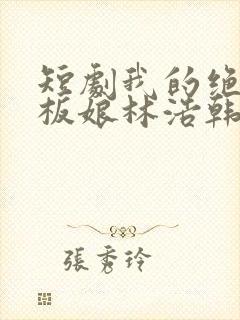 短劇我的绝
板娘林浩韩
張秀玲